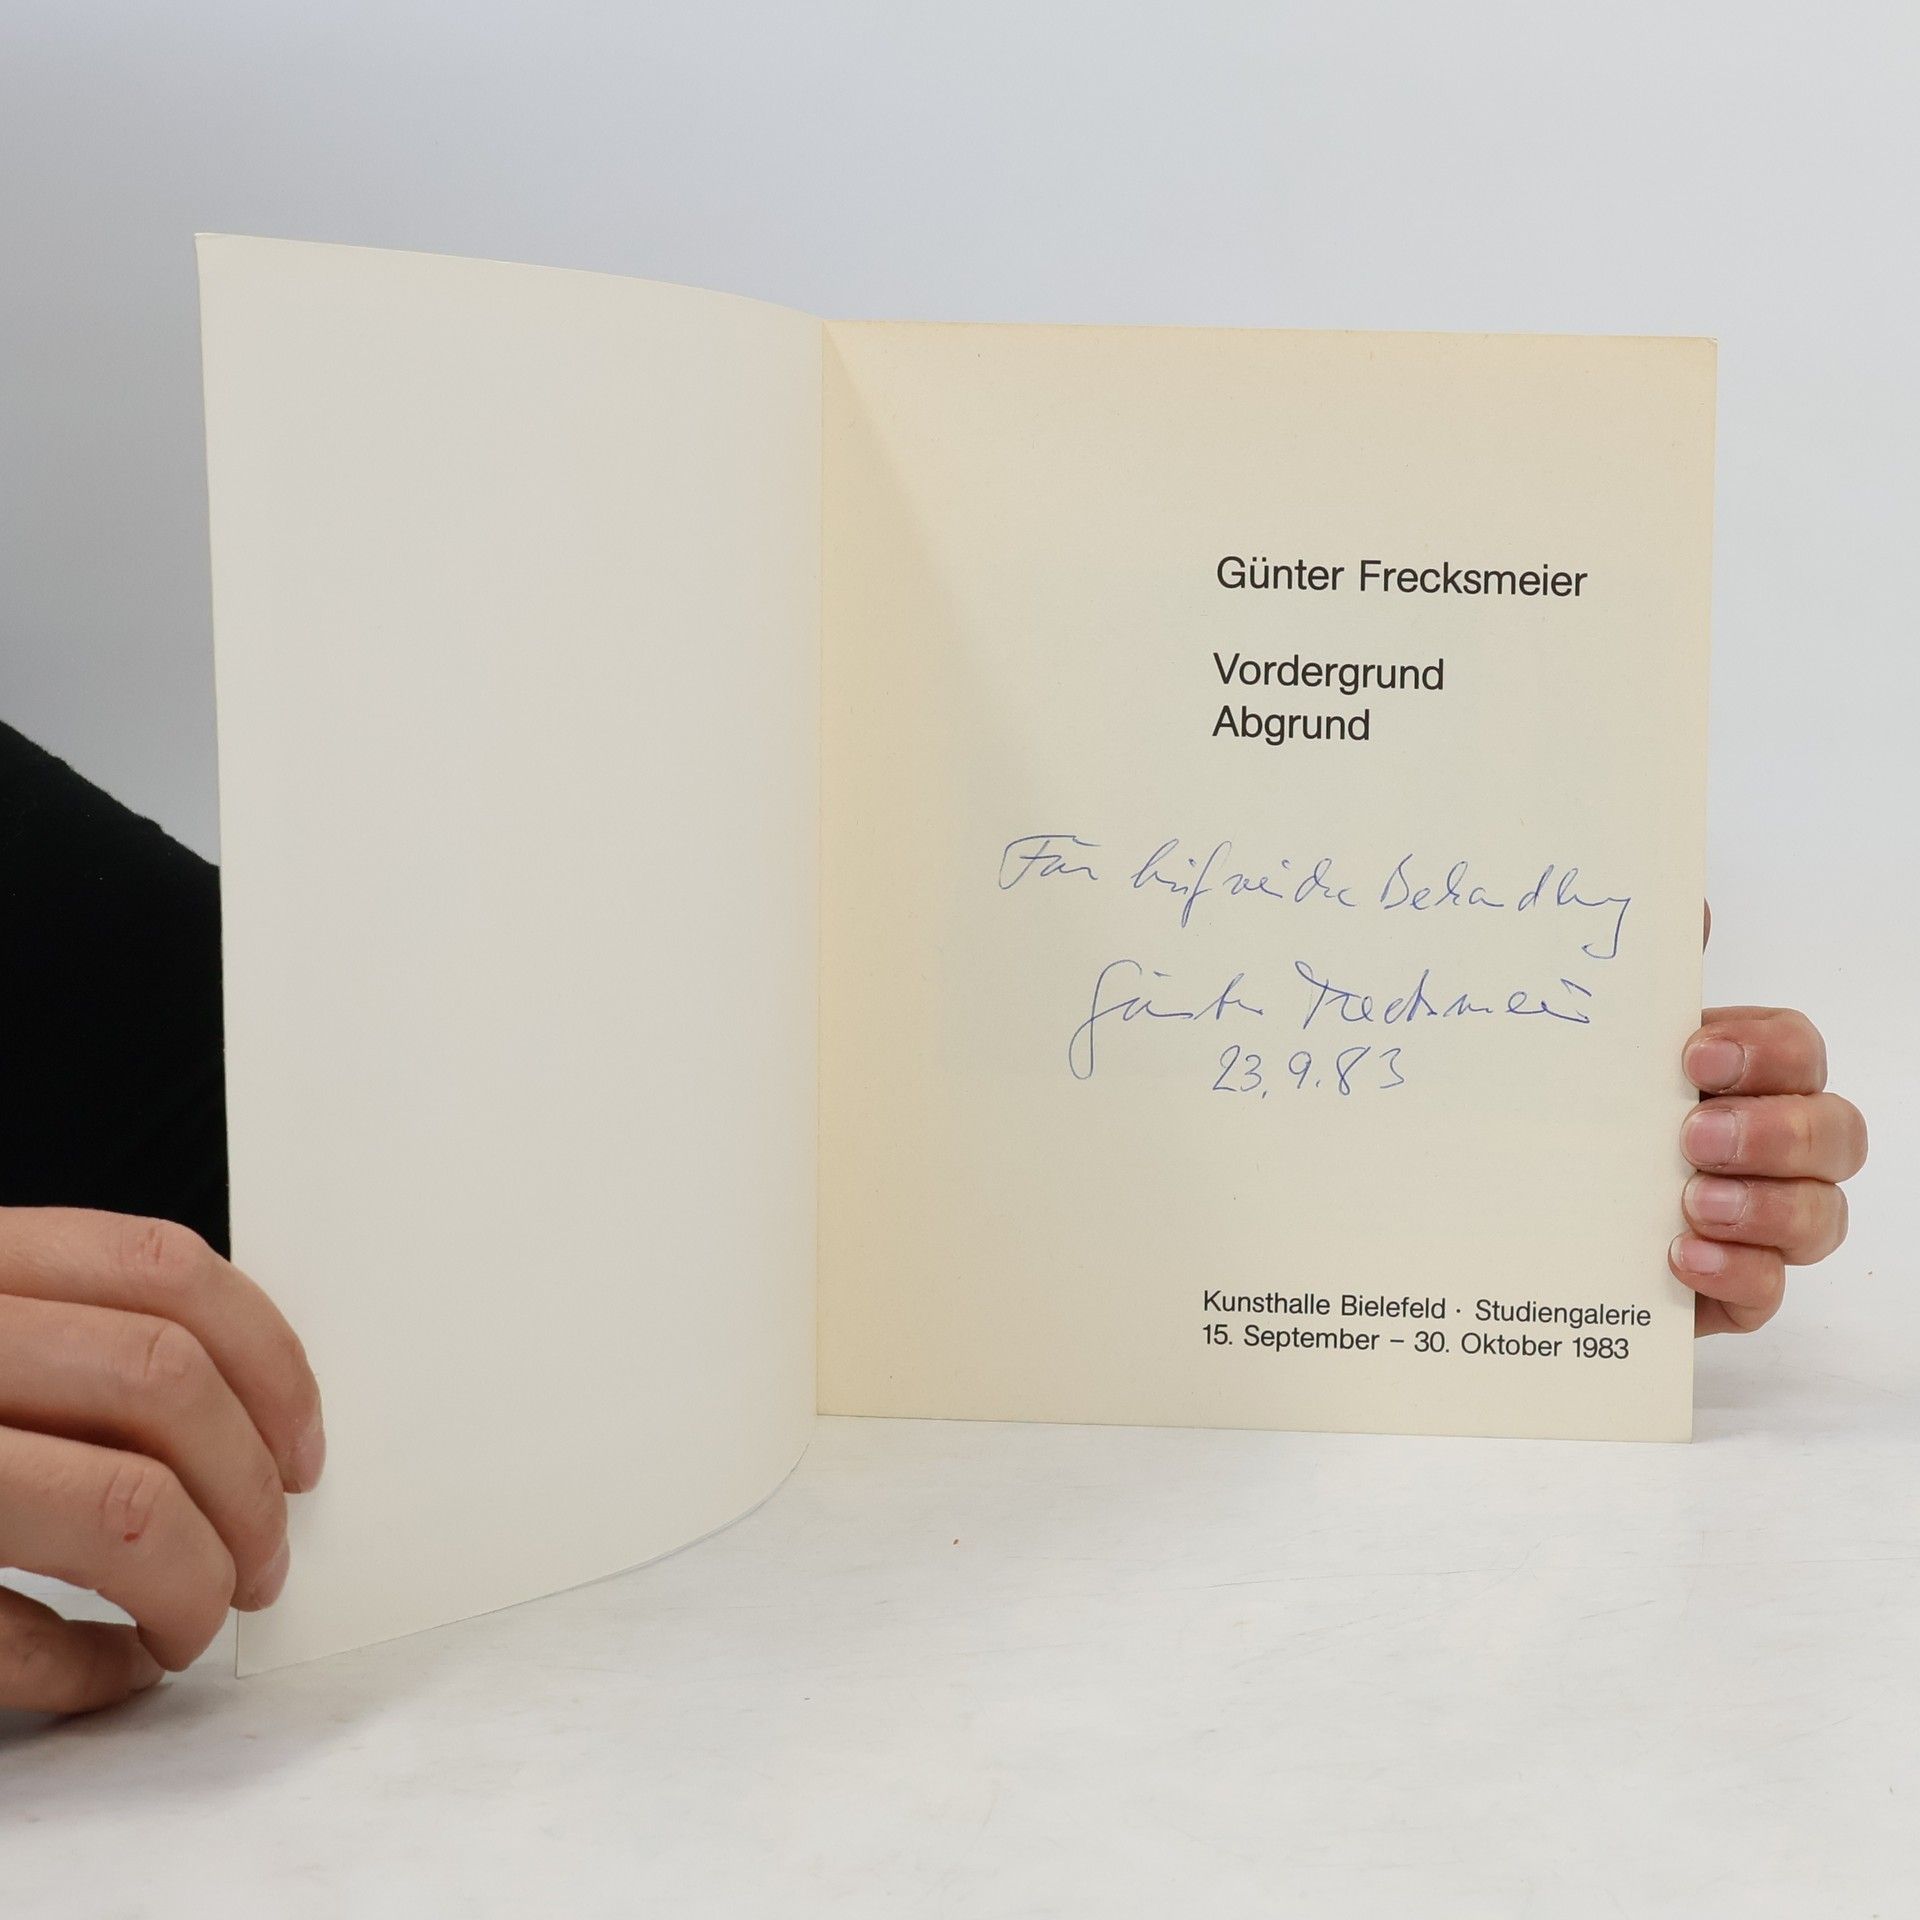 Günter Frecksmeier
Vordergrund
Abgrund
Für hilfreiche Behandlung
Günter Frecksmeier
23.9.83
Kunsthalle Bielefeld · Studiengalerie
15. September – 30. Oktober 1983